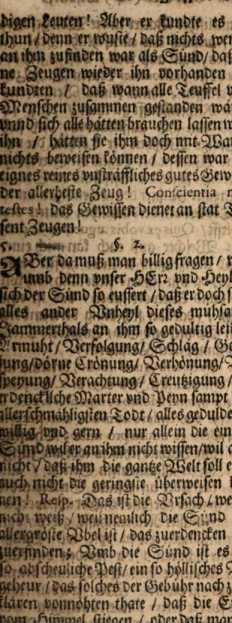 digen Leuten! Aber er kundte es
thun / denn er wuste / daß nichts
an ihm zufinden war als Sünd / daß
ne Zeugen wieder ihn vorhanden
kundten / daß wann alle Teuffel
Menschen zusammen gestanden
vnnd sich alle hätten brauchen lassen
ihn / hätten sie ihm doch nut
nichts beweisen können / dessen war
eignes reines vnsträffliches gutes
der allerbeste Zeug! Conscientia
testes! das Gewissen dienet an stat
sent Zeugen!
§. 2.
ABer da muß man billig fragen /
umb denn vnser HErr vnd
sich der Sünd so eussert / daß er doch
alles ander Vnheyl dieses
Jammerthals an ihm so gedultig
Armuht / Verfolgung / Schläg /
ung / dörne Crönung / Verhönung /
speyung / Verachtung / Creutzigung /
erdenckliche Marter vnd Peyn sampt
allerschmähligsten Todt / alles
willig vnd gern / nur allein die
Sünd wil er an ihm nicht wissen / wil
nicht / daß ihm die gantze Welt soll
auch nicht die geringste überweisen
nen! Resp. Das ist die Vrsach /
nicht weiß / weil nemlich die Sünd
allergröste Vbel ist / das zuerdencken
zuerfinden; Vmb die Sünd ist es
so abscheuliche Pest / ein so höllisches
geheur / das solches der Gebühr nach
klären vonnöhten thäte / daß die
vom Himmel stiegen / oder daß